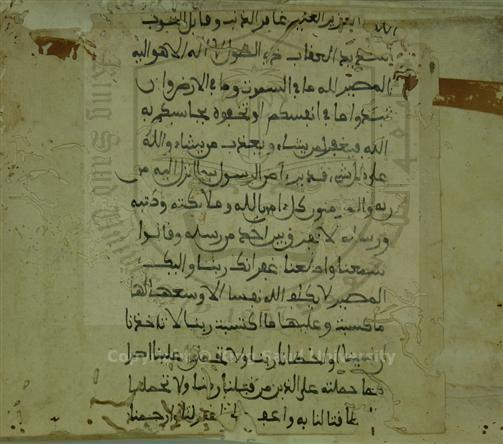 الله العزيز العليم غافر الذنب وقابل التوب
شديد العقاب ذي الطول لا اله الا هو اليه
المصير لله ما في السموت وما في الارض وان
تبدوا ما في انفسكم او تخفوه يحاسبكم به
الله فيغفر لمن يشاء ويعذب من يشاء والله
على كل شيء قدير امن الرسول بما انزل اليه من
ربه والمومنون كل امن بالله وملائكته وكتبه
ورسله لا نفرق بين احد من رسله وقالوا
سمعنا واطعنا غفرانك ربنا واليك
المصير لا يكلف الله نفسا الا وسعها لها
ما كسبت وعليها ما اكتسبت ربنا لا تاخذنا
ان نسينا او اخطانا ربنا ولا تحمل علينا اصرا
كما حملته على الذين من قبلنا ربنا ولا تحملنا
طاقة لنا به واعف عنا واغفر لنا وارحمنا
King Saud University
Copyright © King Saud University